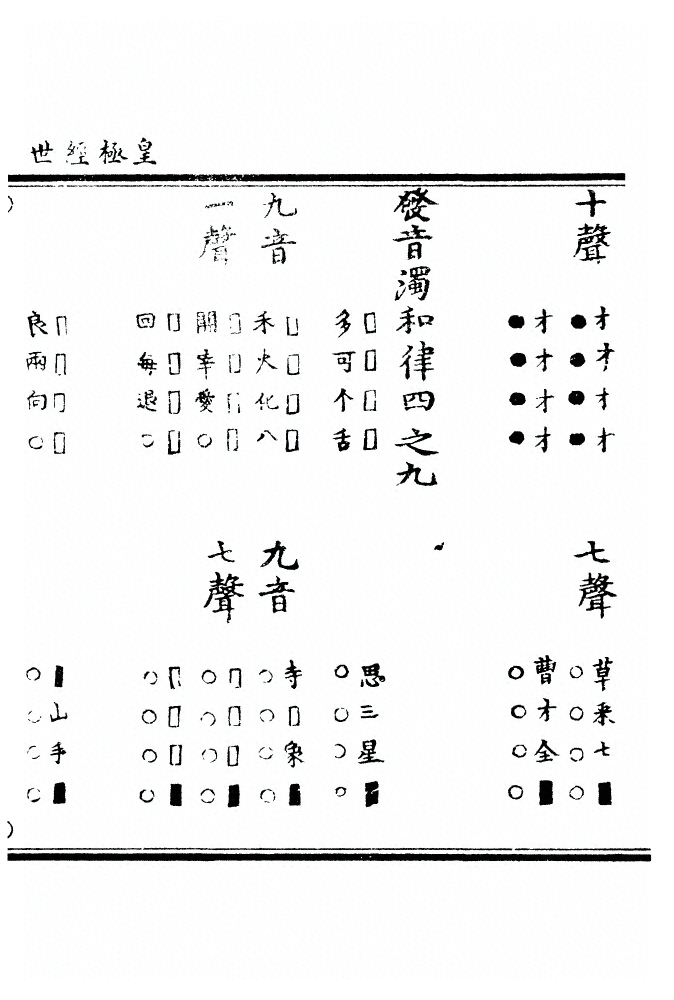 皇極經世
十聲
才才才才
●●●●
才才才才
●●●●
七聲
草采七■
○○○○
曹才全■
○○○○
發音濁和律四之九
□□□□
多可个舌
思三星■
○○○○
九音
□□□□
禾火化八
九音
寺□象■
○○○○
一聲
□□□□
開宰愛○
七聲
□□□■
○○○○
□□□□
回每退○
□□□■
○○○○
□□□□
良兩向○
■山手■
○○○○